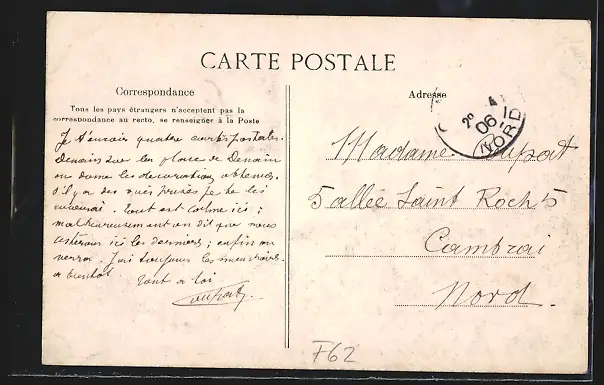 CARTE POSTALE
Correspondance
Tous les pays étrangers n'acceptent pas la
correspondance au recto, se renseigner à la Poste
Je t'envoie quatre cartes postales.
Denain sur la place de Denain
on donne les decorations obtenus.
s'il y a des vues prises je te les
enverrai. Tout est calme ici ;
malheureusement on dit que nous
resterons ici les derniers ; enfin on
verra. J'ai toujours les
a bientot.
Tout a toi
Adresse
4
06
NORD
Madame Dupont
5 allée Saint Roch 5
Cambrai
Nord.
F62